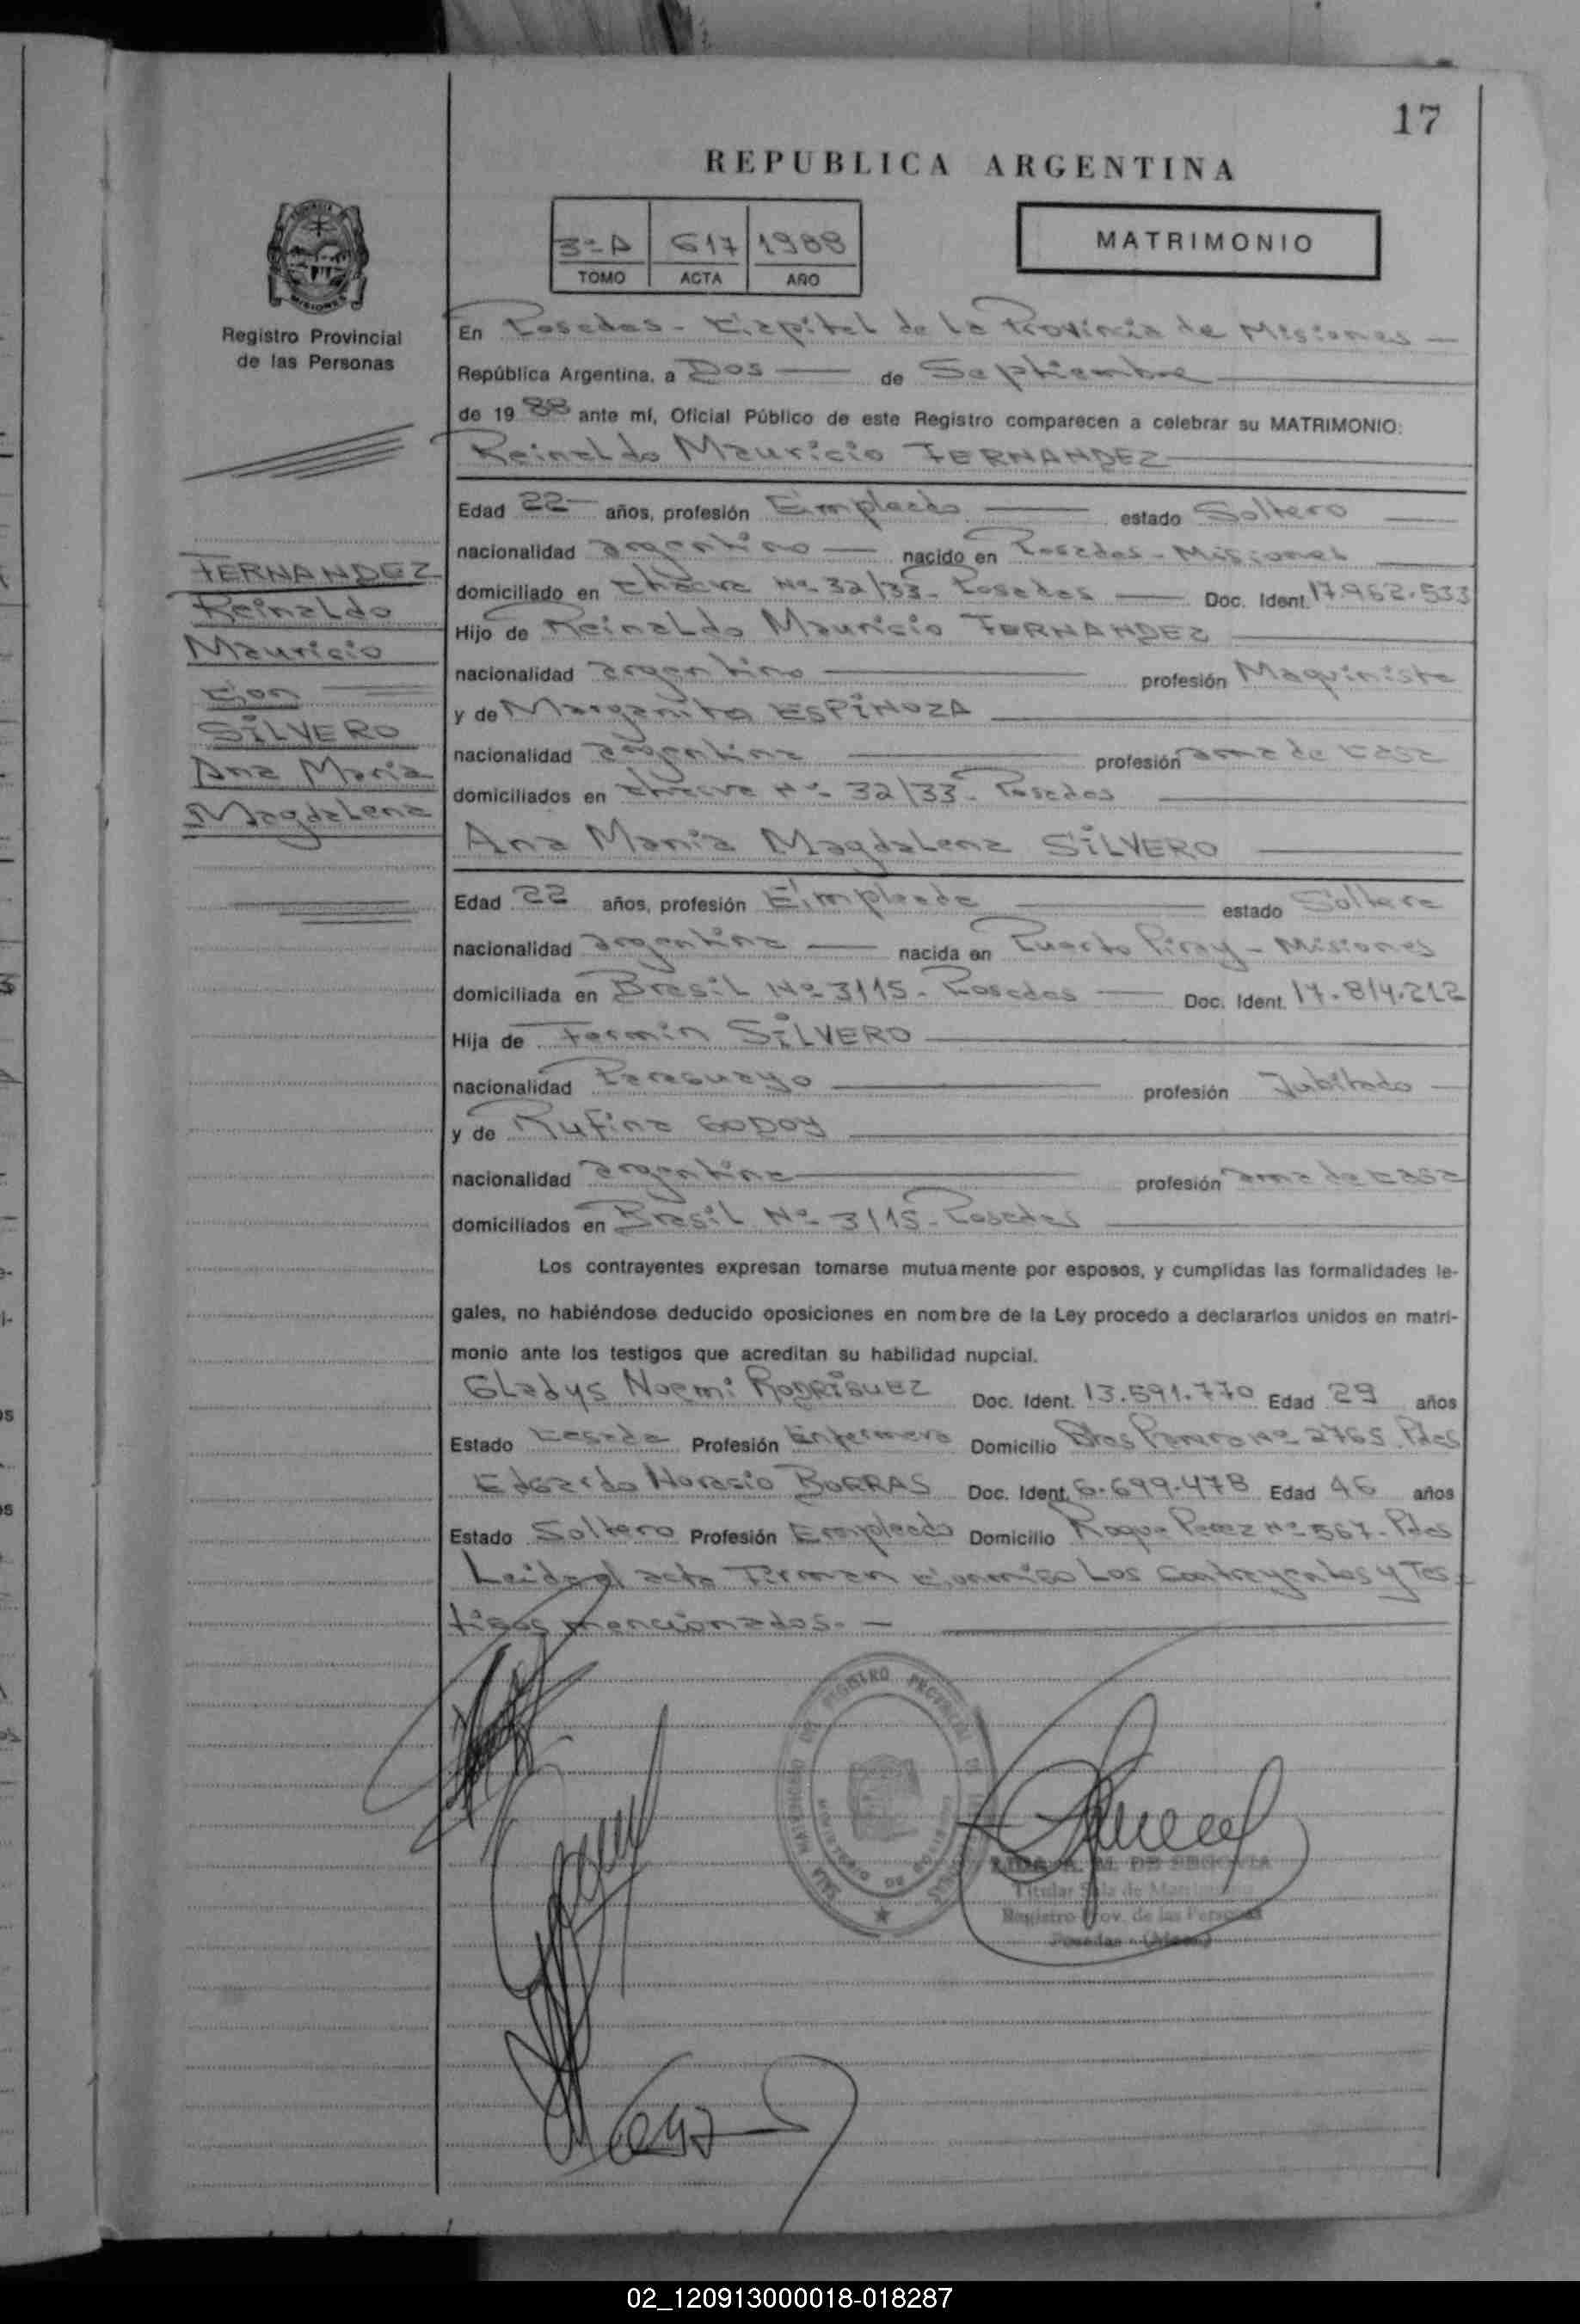 17
REPUBLICA ARGENTINA
3º A 617 1988
TOMO ACTA AÑO
MATRIMONIO
Registro Provincial
de las Personas
FERNANDEZ
Reinaldo
Mauricio
Con
SILVERO
Ana Maria
Magdalena
En Posadas - Capital de la Provincia de Misiones
República Argentina, a Dos de Septiembre
de 1988 ante mí, Oficial Público de este Registro comparecen a celebrar su MATRIMONIO:
Reinaldo Mauricio FERNANDEZ
Edad 22 años, profesión Empleado estado Soltero
nacionalidad argentino nacido en Posadas - Misiones
domiciliado en Chacra Nº 32/33 - Posadas Doc. Ident. 17.962.533
Hijo de Reinaldo Mauricio FERNANDEZ
nacionalidad argentino profesión Maquinista
y de Margarita ESPINOZA
nacionalidad argentina profesión ama de casa
domiciliados en Chacra Nº 32/33 - Posadas
Ana Maria Magdalena SILVERO
Edad 22 años, profesión Empleada estado Soltera
nacionalidad argentina nacida en Puerto Piray - Misiones
domiciliada en Brasil Nº 3115 - Posadas Doc. Ident. 17.814.212
Hija de Fermin SILVERO
nacionalidad Paraguayo profesión Jubilado
y de Rufina GODOY
nacionalidad argentina profesión ama de casa
domiciliados en Brasil Nº 3115 - Posadas
Los contrayentes expresan tomarse mutuamente por esposos, y cumplidas las formalidades le-
gales, no habiéndose deducido oposiciones en nombre de la Ley procedo a declararlos unidos en matri-
monio ante los testigos que acreditan su habilidad nupcial.
Gladys Noemi RODRIGUEZ Doc. Ident. 13.591.770 Edad 29 años
Estado Casada Profesión Enfermera Domicilio Nº 2765. Pdas
Edgardo Horacio BORRAS Doc. Ident. 6.699.478 Edad 46 años
Estado Soltero Profesión Empleado Domicilio Roque Perez Nº 567 - Pdas
Leida el acta Firman Conmigo Los Contrayentes y Tes-
tigos mencionados. -
LIDIA A. M. DE SEGOVIA
Titular Sala de Matrimonio
Registro Prov. de las Personas
Posadas - (Mnes)
02_120913000018-018287